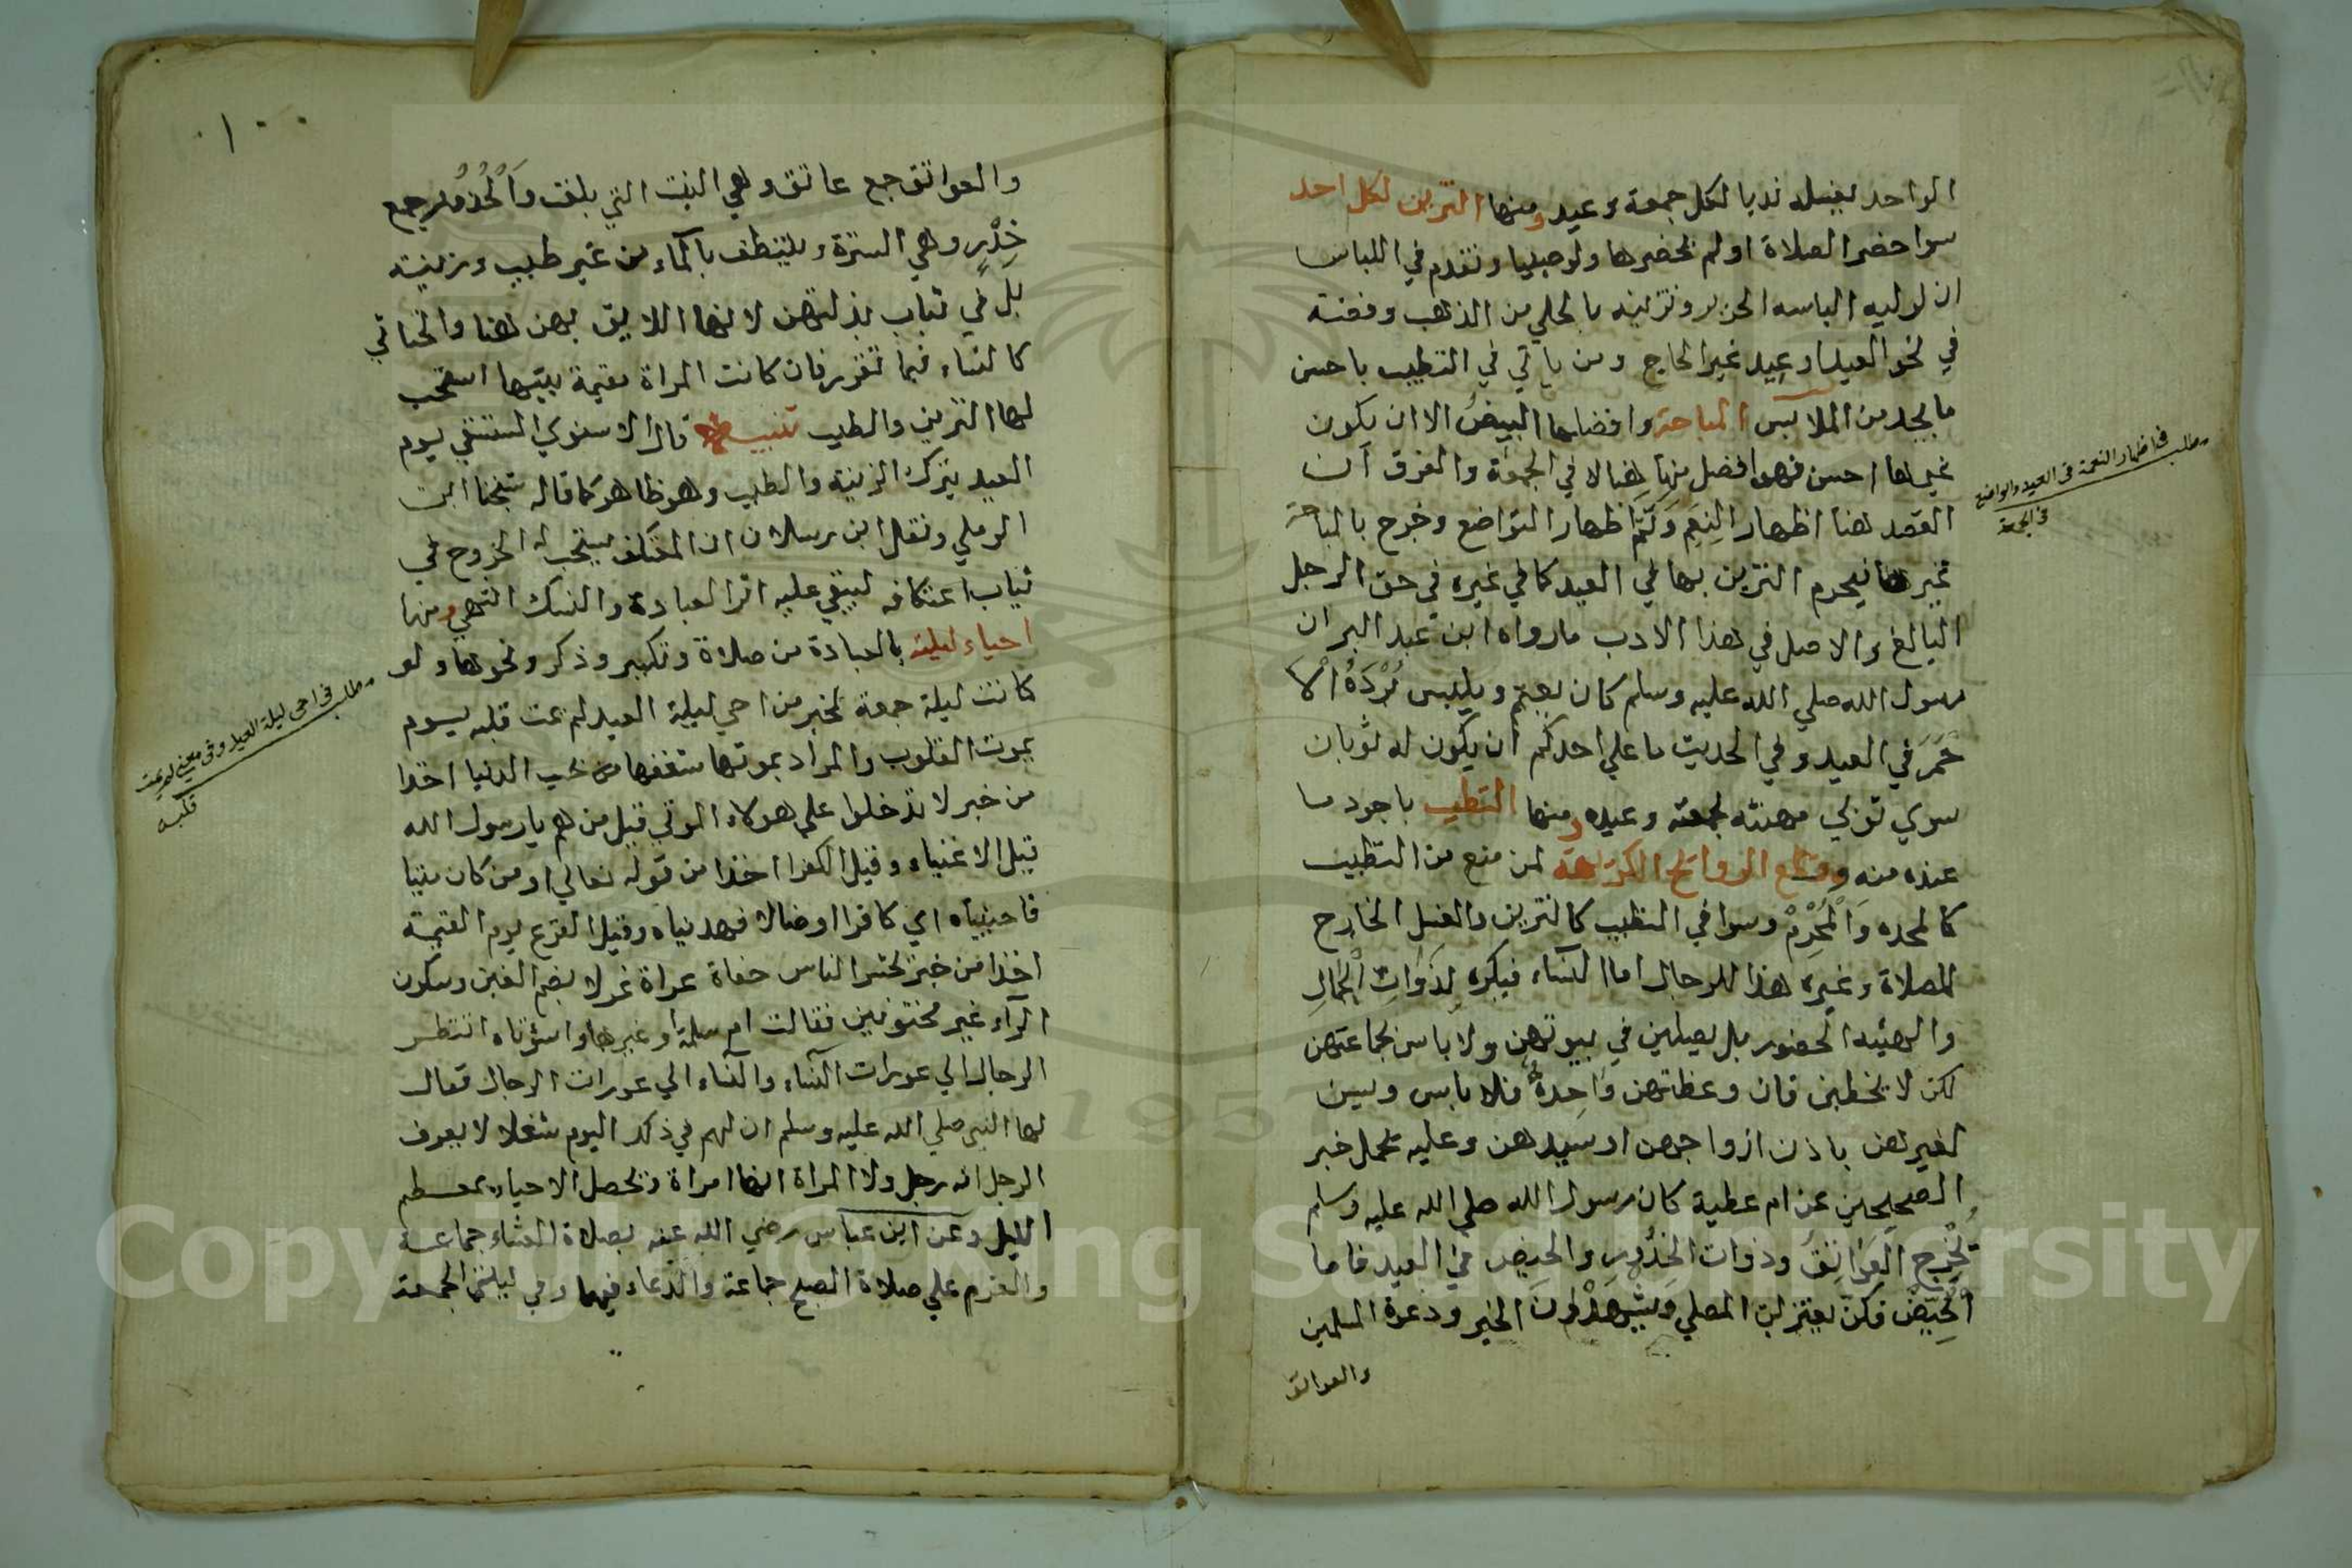 الواحد بغسله ندبا لكل جمعة وعيد ومنها التزين لكل احد
سوا حضر الصلاة او لم يحضرها ولو صبيا وتقدم في اللباس
ان لوليه الباسه الحرير وتزيينه بالحلي من الذهب وفضة
في نحو العيد او عيد غير الحاج ومن ياتي في التطيب باحسن
ما يجد من الملابس المباحة وافضلها البيض الا ان يكون
غيرها احسن فهو افضل منها هنا لا في الجمعة والفرق ان
القصد هنا اظهار النعم وثم اظهار التواضع وخرج بالمباحة
غيرها فيحرم التزين بها في العيد كما في غيره في حق الرجل
البالغ والاصل في هذا الادب ما رواه ابن عبد البر ان
رسول الله صلي الله عليه وسلم كان يعتم ويلبس بُرْدَهُ الا
حمر في العيد وفي الحديث ما علي احدكم ان يكون له ثوبان
سوي ثوبي مهنته لجمعته وعيده ومنها التطيب باجود ما
عنده منه وقطع الروائح الكريهة لمن منع من التطيب
كالمحده وَالْمُحْرِمْ وسوا في التطيب كالتزين والغسل الخارج
للصلاة وغيره هذا للرجال اما النساء فيكره لذوات الجمال
والهيئة الحضور بل يصلين في بيوتهن ولا باس بجماعتهن
لكن لا يخطبن فان وعظتهن واحدة فلا باس ويسن
لغيرهن باذن ازواجهن او سيدهن وعليه يحمل خبر
الصحيحين عن ام عطية كان رسول الله صلي الله عليه وسلم
يُخْرِج العَوَاتِقَ وذوات الخدور والحيض في العيد فاما
الْحُيَّضْ فكن يعتزلن المصلي ويشهدون الخير ودعوة المسلمين
والعواتق
مطلب في اظهار النعمة في العيد والتواضع
في الجمعة
١٠٠
والعواتق جمع عاتق وهي البنت التي بلغت وَالْخُدُورْ جمع
خِدْرٍ وهي السترة ويتنظف بالماء من غير طيب وزينة
بل في ثياب بذلتهن لانها اللايق بهن هنا والخناثي
كالنساء فيما تقرر فان كانت المراة مقيمة ببيتها استحب
لها التزين والطيب تنبيه قال الاسنوي المستسقي يوم
العيد يترك الزينة والطيب وهو ظاهر كما قاله شيخنا ابن
الرملي ونقل ابن رسلان ان المعتكف يستحب له الخروج في
ثياب اعتكافه ليبقي عليه اثر العبادة والنسك انتهي ومنها
احياء ليلته بالعبادة من صلاة وتكبير وذكر ونحوها ولو
كانت ليلة جمعة لخبر من احي ليلة العيد لم يمت قلبه يوم
يموت القلوب والمراد بموتها شغفها من حب الدنيا اخذا
من خبر لا تدخلوا علي هولاء الموتي قيل من هم يا رسول الله
قيل الاغنياء وقيل الكفرا اخذا من قوله تعالي او من كان ميتا
فاحييناه اي كافرا او ضالا فهديناه وقيل الفزع يوم القيمة
اخذا من خبر تحشر الناس حفاة عراة غرلا بضم الغين وسكون
الراء غير مختونين فقالت ام سلمة او غيرها واسؤتاه انتظر
الرجال الي عورات النساء والنساء الي عورات الرجال فقال
لها النبي صلي الله عليه وسلم ان لهم في ذلك اليوم شغلا لا يعرف
الرجل انه رجل ولا المراة انها امراة وتحصل الاحياء بمعظم
الليل وعن ابن عباس رضي الله عنه بصلاة العشاء جماعة
والعزم علي صلاة الصبح جماعة والدعاء فيهما وفي ليلتي الجمعة
مطلب في احي ليلة العيد وفي معني لم يمت
قلبه
Copyright © King Saud University
1957